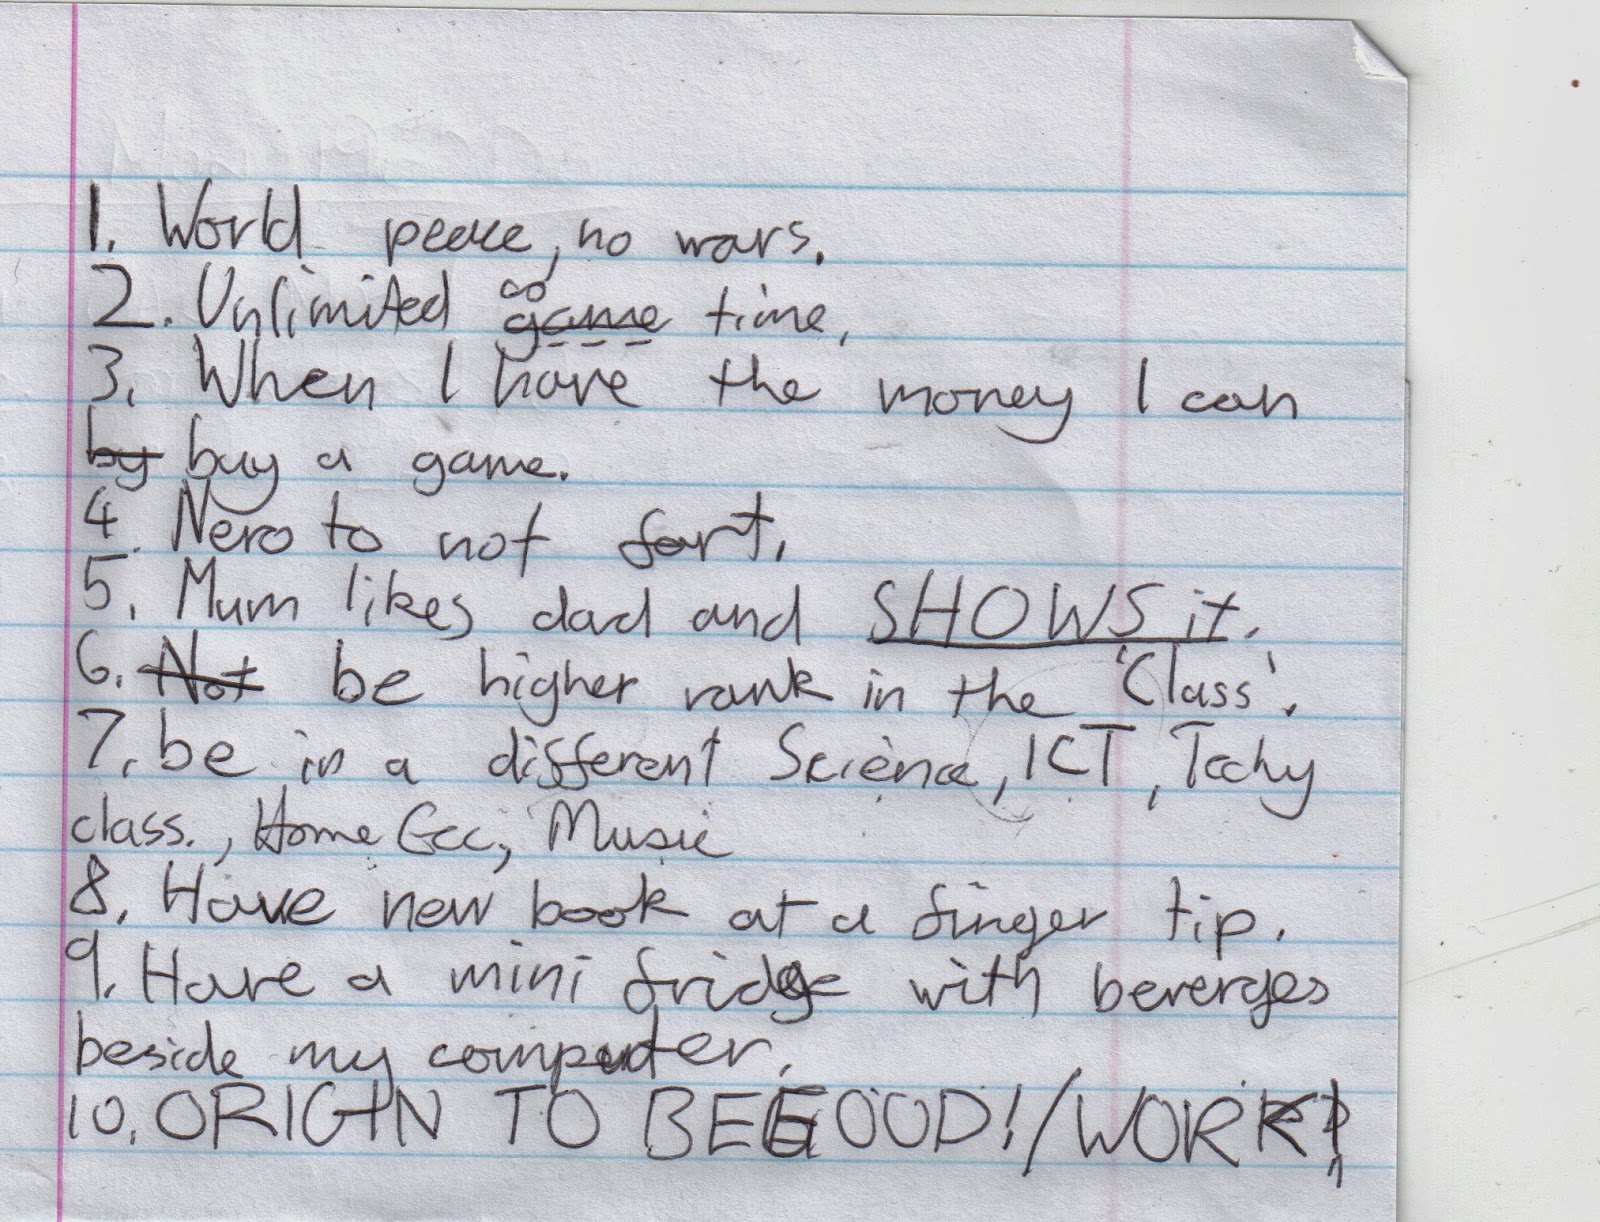 1. World peace, no wars.
2. Unlimited ∞ game time,
3. When I have the money I can
by buy a game.
4. Nero to not fart.
5. Mum likes dad and SHOWS it.
6. Not be higher rank in the 'Class'.
7. be in a different Science, ICT, Techy
class., Home Ecc, Music
8. Have new book at a finger tip.
9. Have a mini fridge with beverges
beside my computer.
10. ORIGIN TO BE GOOD!/WORK!